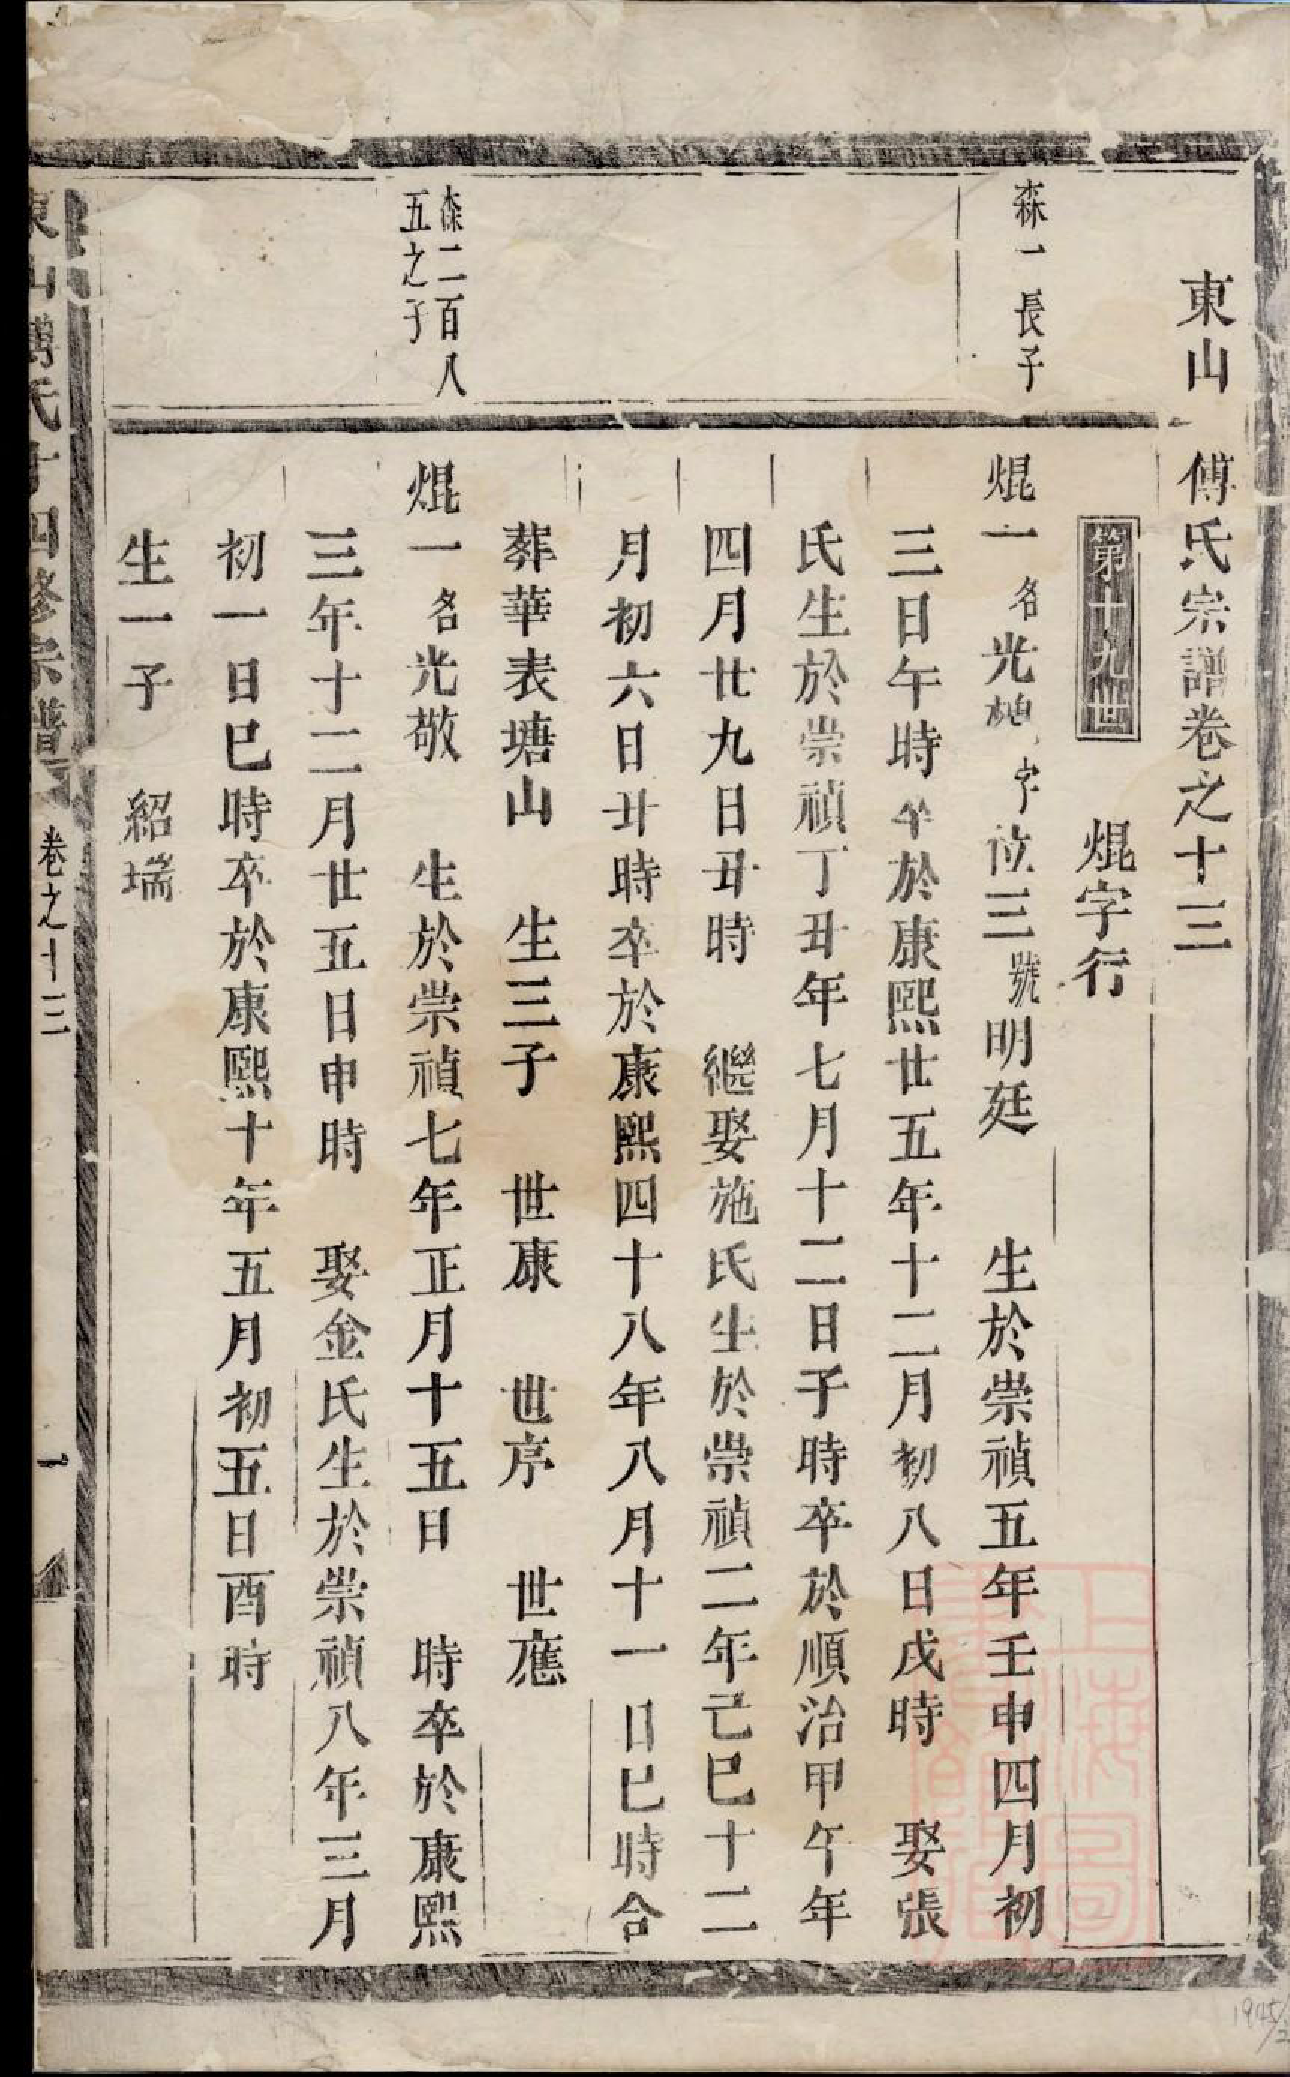 東山　傅氏宗譜卷之十三
第十九世　焜字行
森一長子
焜一 名光 字 三號明廷　生於崇禎五年壬申四月初
三日午時卒於康熙廿五年十二月初八日戌時　娶張
氏生於崇禎丁丑年七月十二日子時卒於順治甲午年
四月廿九日丑時　繼娶施氏生於崇禎二年己巳十二
月初六日丑時卒於康熙四十八年八月十一日巳時合
葬華表塘山　生三子　世康　世序　世應
森二百八
五之子
焜一 名光敬　生於崇禎七年正月十五日　時卒於康熙
三年十二月廿五日申時　娶金氏生於崇禎八年三月
初一日巳時卒於康熙十年五月初五日酉時
生一子　紹瑞
東山傅氏十四修宗譜　卷之十三　一
上海圖書館藏